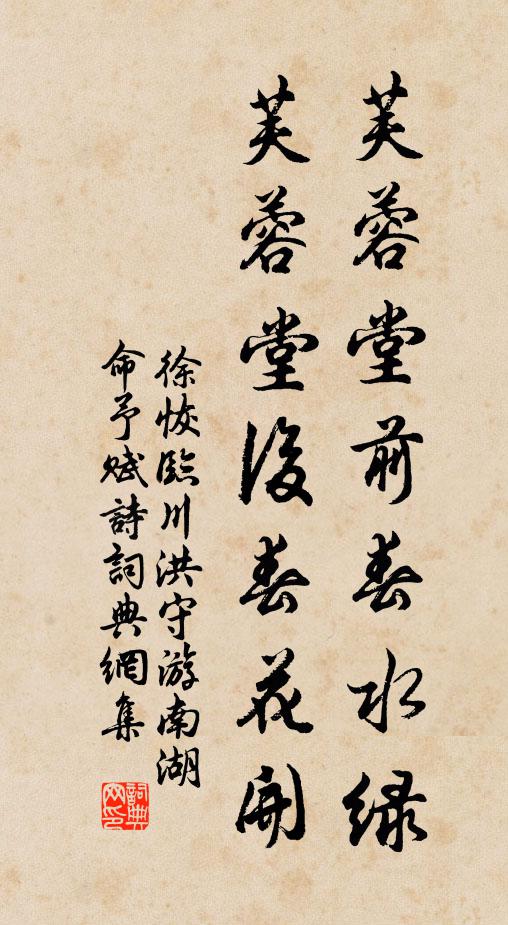 芙蓉堂前春水綠
芙蓉堂後春花開
徐恢臨川洪守游南湖
命予賦詩詞典網集
詞典網印